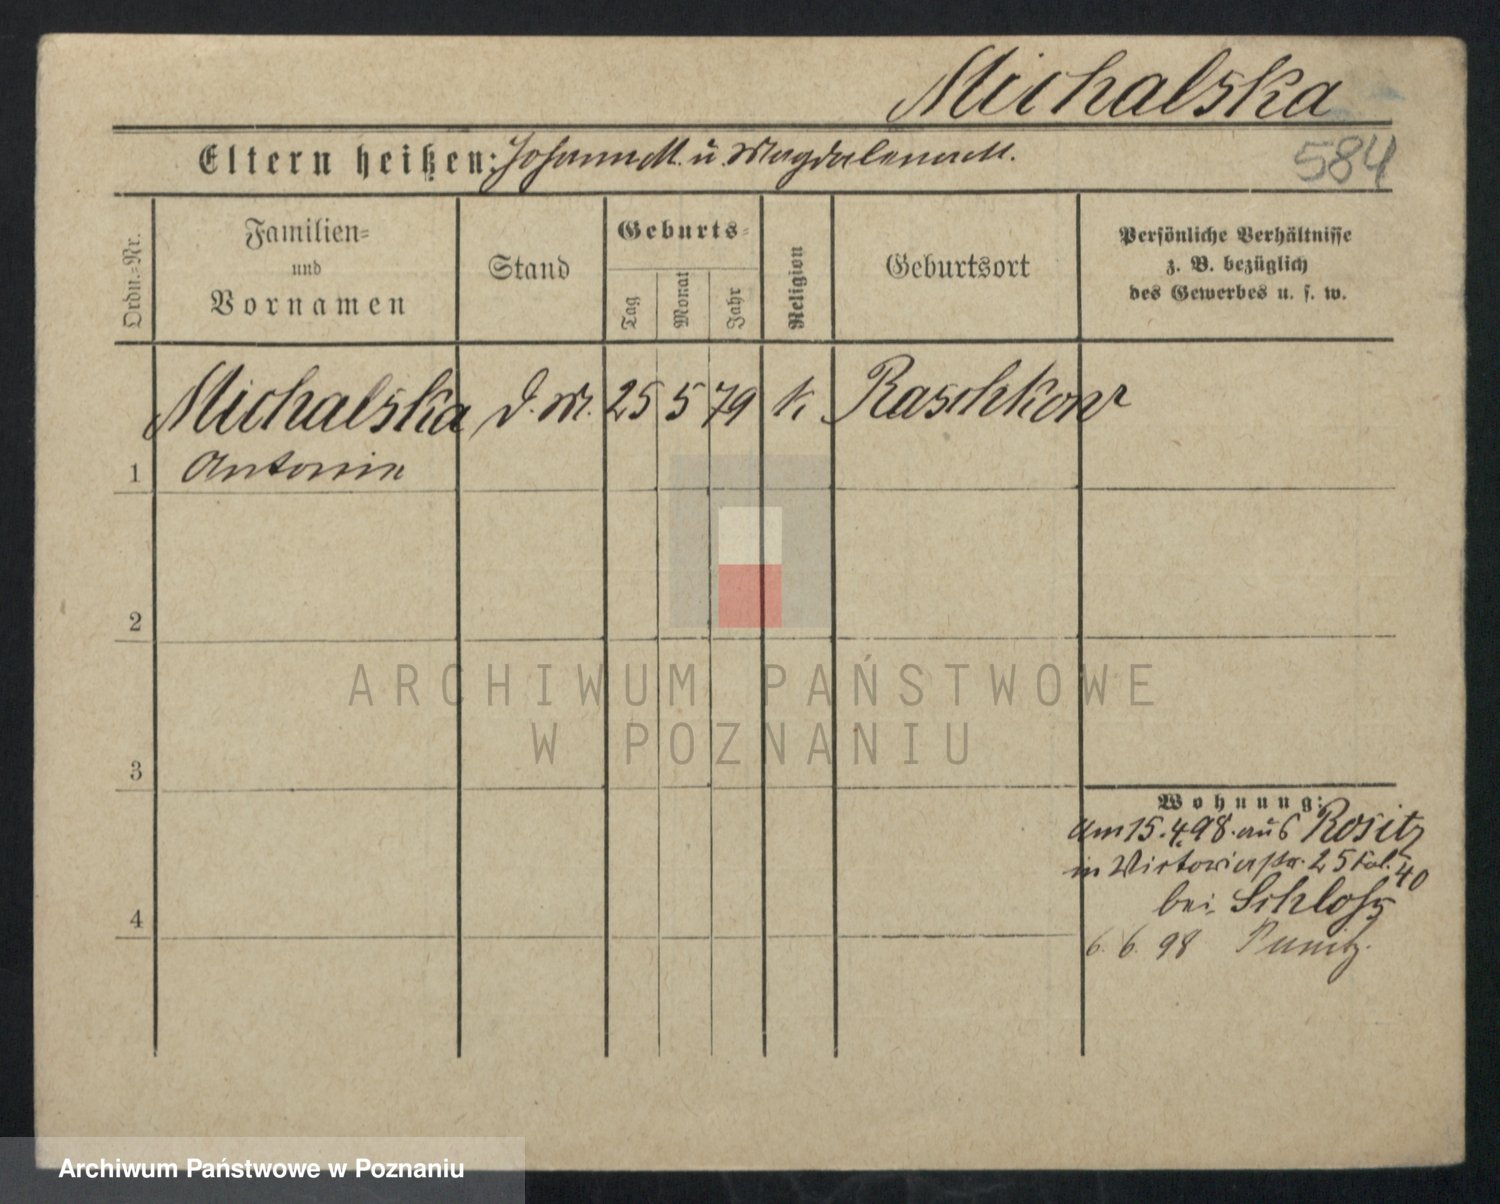 Michalska
Eltern heißen: Johann M. u. Magdalena M.
584
Ordn.=Nr.
Familien=
und
Vornamen
Stand
Geburts=
Tag
Monat
Jahr
Religion
Geburtsort
Persönliche Verhältnisse
z. B. bezüglich
des Gewerbes u. s. w.
Michalska d. M. 25 5 79 k. Raschkow
1 Antonie
2
ARCHIWUM PAŃSTWOWE
W POZNANIU
3
Wohnung:
am 15.4.98. aus Rositz
in Victoriastr. 25 Fol. 40
bei Schloss
6. 6. 98 Punitz.
4
Archiwum Państwowe w Poznaniu